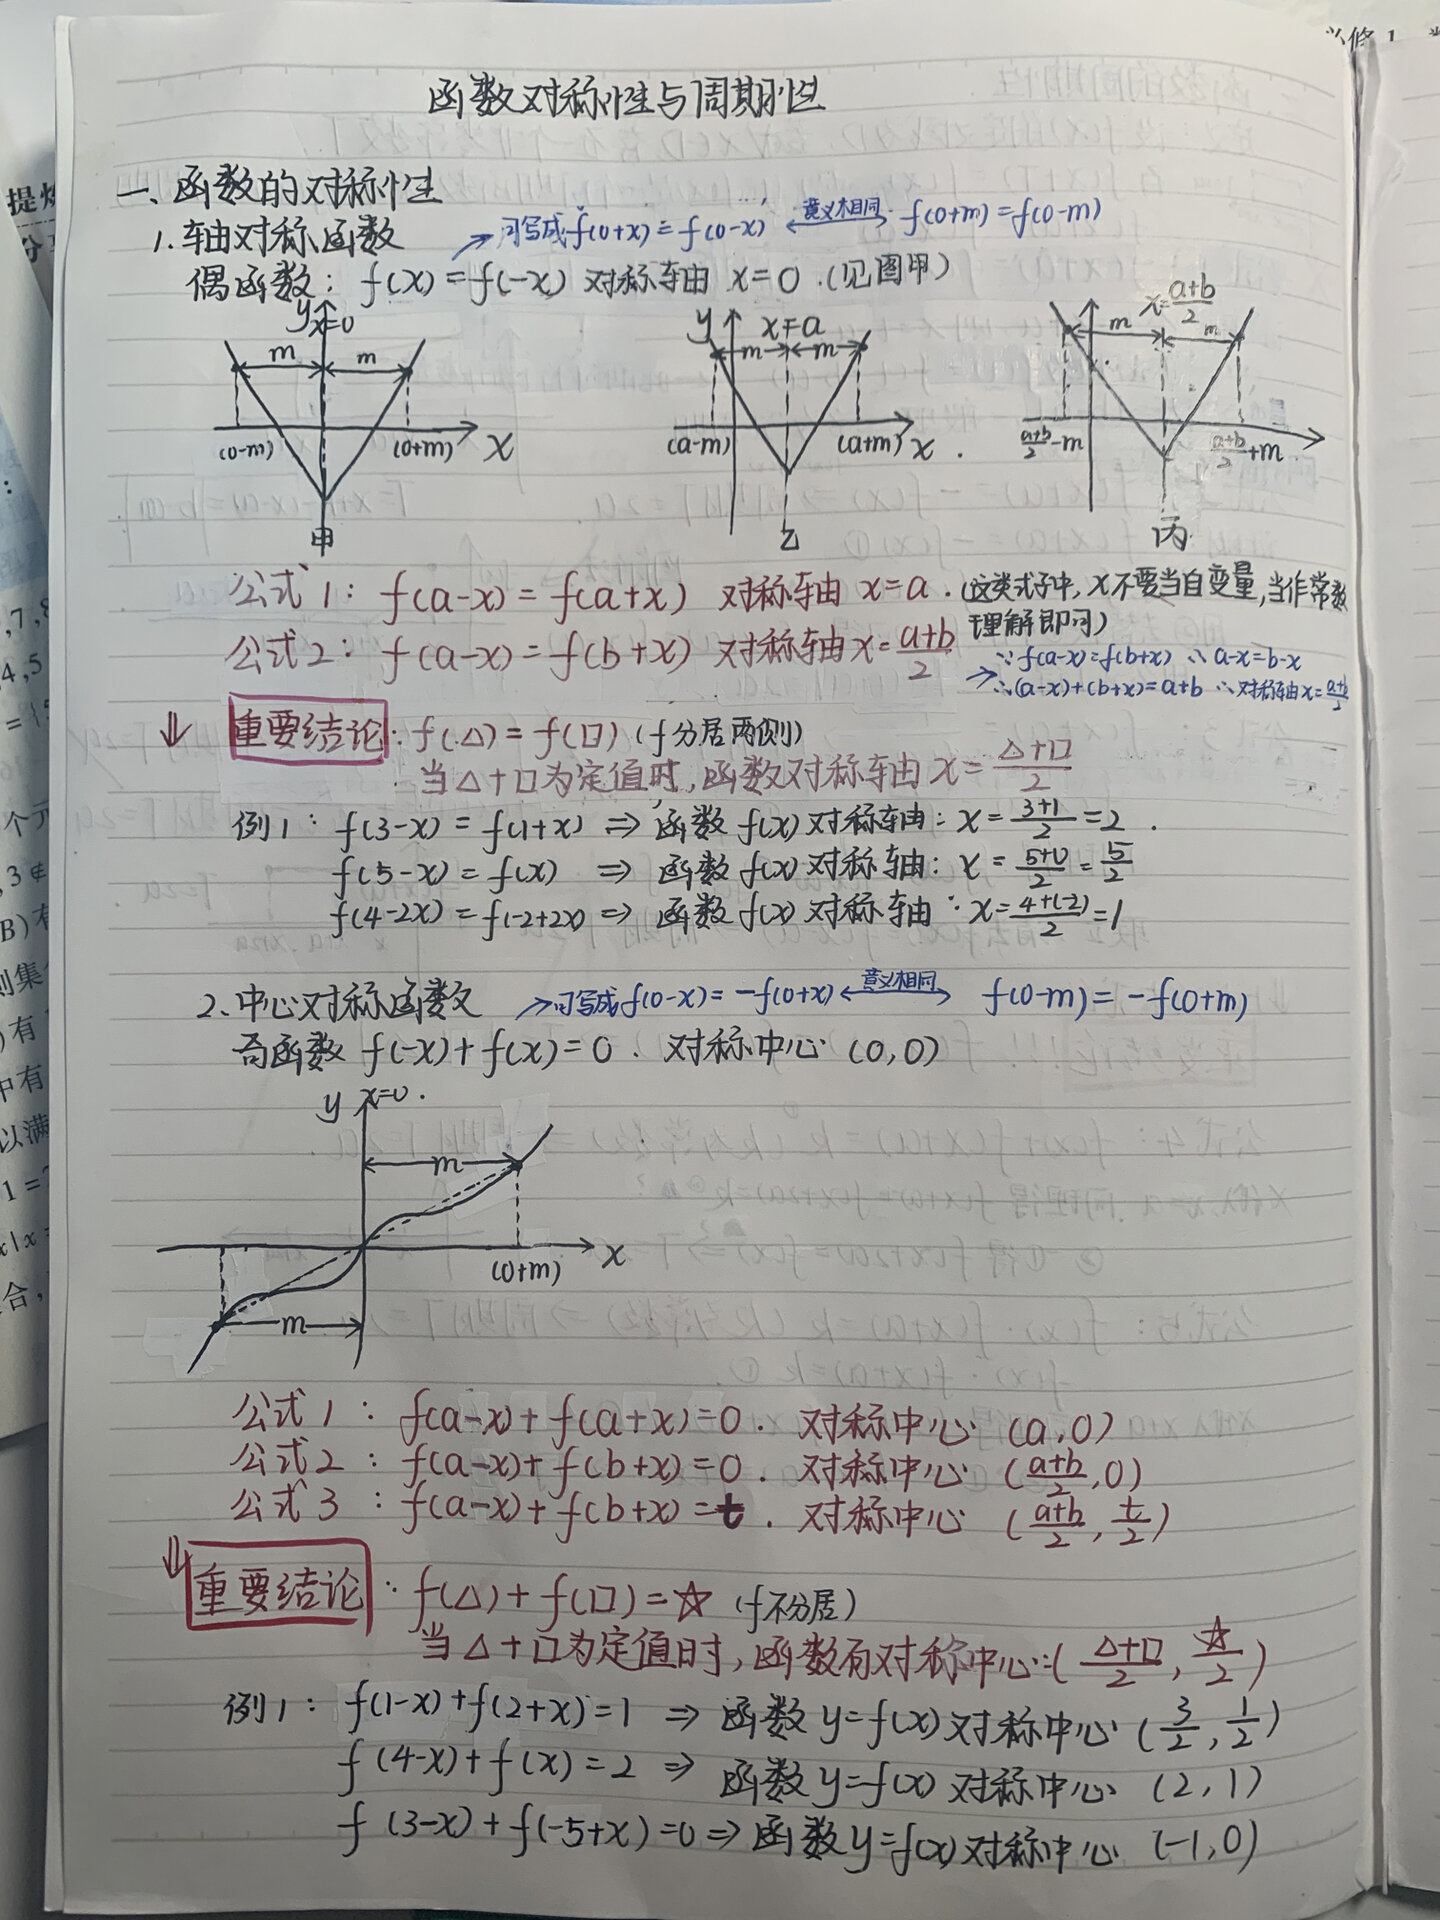 函数对称性与周期性
一、函数的对称性
1. 轴对称函数
→可写成f(0+x)=f(0-x) ⟷意义相同 f(0+m)=f(0-m)
偶函数: f(x)=f(-x) 对称轴 x=0.(见图甲)
y x=0 m m (0-m) (0+m) x 甲
y x=a m m (a-m) (a+m) x. 乙
x=\frac{a+b}{2} m m \frac{a+b}{2}-m \frac{a+b}{2}+m 丙
公式1: f(a-x)=f(a+x) 对称轴 x=a.(这类式子中, x不要当自变量,当作常数
理解即可)
公式2: f(a-x)=f(b+x) 对称轴x=\frac{a+b}{2}
→ ∵f(a-x)=f(b+x) ∴a-x=b-x
∴(a-x)+(b+x)=a+b ∴对称轴x=\frac{a+b}{2}
⇓ 重要结论: f(△)=f(□) (f分居两侧)
当△+□为定值时,函数对称轴 x=\frac{△+□}{2}
例1: f(3-x)=f(1+x) ⇒ 函数 f(x) 对称轴: x=\frac{3+1}{2}=2.
f(5-x)=f(x) ⇒ 函数 f(x) 对称轴: x=\frac{5+0}{2}=\frac{5}{2}
f(4-2x)=f(-2+2x) ⇒ 函数 f(x) 对称轴: x=\frac{4+(-2)}{2}=1
2. 中心对称函数
→可写成f(0-x)=-f(0+x) ⟷意义相同 f(0-m)=-f(0+m)
奇函数 f(-x)+f(x)=0. 对称中心 (0,0)
y x=0.
m
(0+m) x
m
公式1: f(a-x)+f(a+x)=0. 对称中心 (a,0)
公式2: f(a-x)+f(b+x)=0. 对称中心 (\frac{a+b}{2},0)
公式3: f(a-x)+f(b+x)=t. 对称中心 (\frac{a+b}{2},\frac{t}{2})
⇓ 重要结论: f(△)+f(□)=☆ (f不分居)
当△+□为定值时,函数有对称中心:(\frac{△+□}{2},\frac{☆}{2})
例1: f(1-x)+f(2+x)=1 ⇒ 函数 y=f(x) 对称中心 (\frac{3}{2},\frac{1}{2})
f(4-x)+f(x)=2 ⇒ 函数 y=f(x) 对称中心 (2,1)
f(3-x)+f(-5+x)=0 ⇒ 函数 y=f(x) 对称中心 (-1,0)